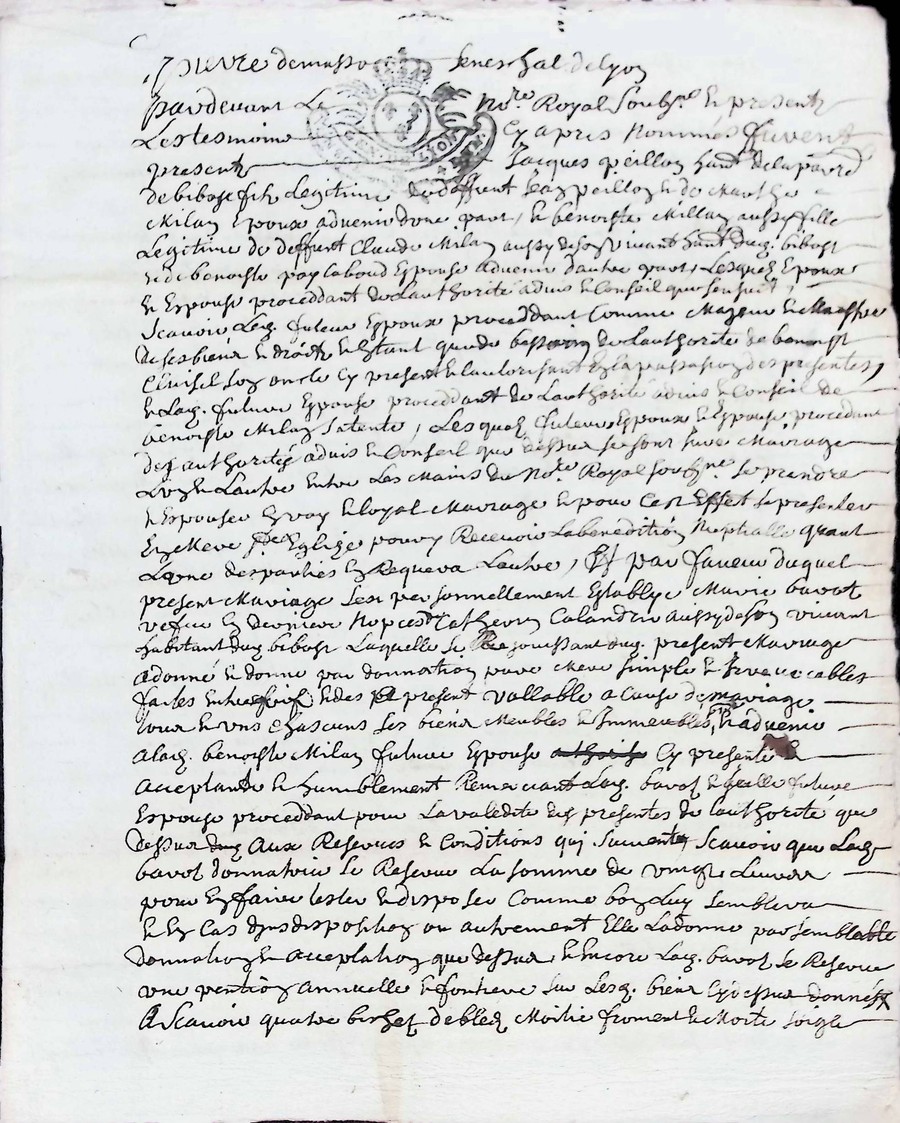 pierre demasso seneschal de lyon
Pardevant Le no.re Royal soub.né Et present
Les tesmoins Cy apres Nommés furent
present Jacques peillon hant de la parro
de bibost fils Legitime de deffunt Jean peillon Et de Marthe
Milan Epoux advenir dune part, Et benoiste Millan aussy fille
Legitime de deffunt Claude Milan aussy de son vivant hant dud. bibost
Et de benoiste Epouse advenir dautre part, Lesquels Epoux
Et Espouse proceddant de Lauthorité advis Et Conseil que sensuit,
scavoir Led. futeur Epoux proceddant Comme Majeur Et Maistre
de ses biens Et droits Et Estant que de besoin de Lauthorité de benoist
son oncle Cy present Et lauthorisant En la passation des presentes,
Et Lad. future Epouse proceddant de Lauthorité advis Et Conseil de
benoiste Milan sa tente, Lesquels futeurs Epoux Et Epouse, procedant
des authorités advis Et Conseil que dessus se sont sure Mariage
Lun Et Lautre Entre Les Mains du No.re Royal soub.né se prendre
Et Espouser En vray Et loyal Mariage Et pour Cest Effet se presenter
En Mere s.te Eglize pour y Recevoir La benedition Nuptialle quant
Lune des parties En Requera Lautre, Et par faveur duquel
present Mariage sest personnellement Establye Marie bavot
vefve En dernieres Nopces de Catherin Calandrin aussy de son vivant
habitant dud. bibost Laquelle se Rejouissant dud. present Mariage
a donné Et donne par donnation pure Mere simple Et Irevocables
faites Entre vifs Et des a present vallable a Cause de mariage
tous Et uns Chascuns ses biens Meubles Et Immeubles, pnt Et advenir
a Lad. benoiste Milan future Epouse Cy presente Et
acceptante Et humblement Remerciant Lad. bavot Et Icelle future
Espouse proceddant pour La validité des presentes de lauthorité que
dessus Aux Reserves Et Conditions qui suivents scavoir que Lad.
bavot donnatrice se Reserve La somme de vingt Livres
pour En faire tester Et disposer Comme bon Luy semblera
Et En Cas d'indisposition ou autrement Elle La donne par semblable
donnation Et acceptation que dessus, Et Encore Lad. bavot se Reserve
une pention annuelle Et fonciere sur Lesd. biens Cy dessus donnés
A scavoir quatre bichet de bled Moitie froment Et Moitié soigle